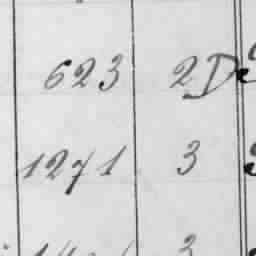 623 2D
1271 3
3